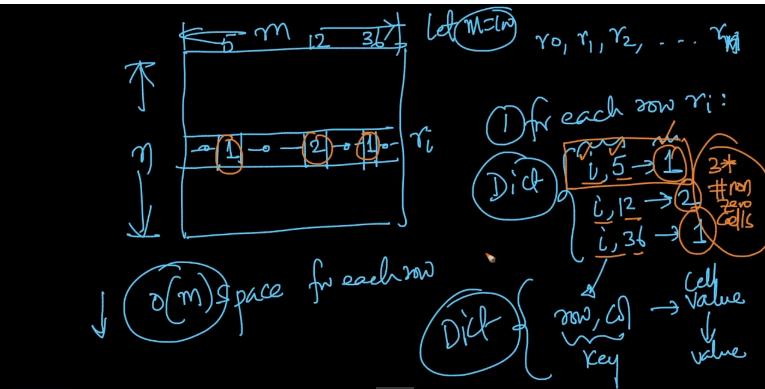 m
5 12 36
Let m=100
r0, r1, r2, ....
n
1 2 1
ri
① for each row ri:
Dict
i, 5 → 1
i, 12 → 2
i, 36 → 1
3*
#non
zero
cells
↓ O(m) space for each row
Dict { row, col → Cell value
↓
Key value